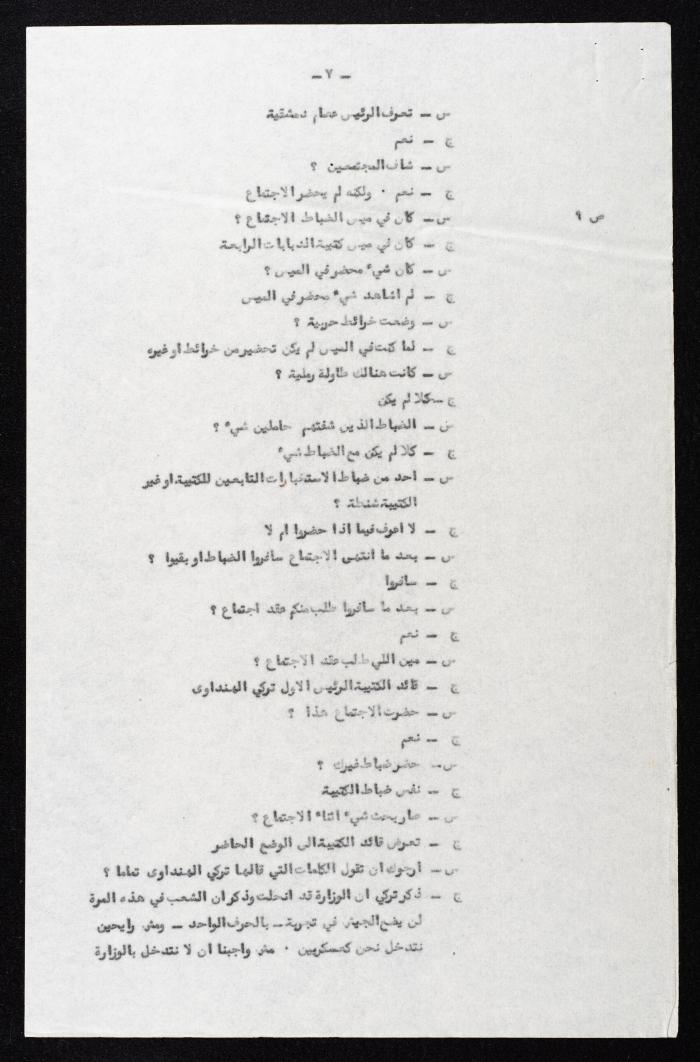 — ٧ —
س — تعرف الرئيس عصام دمشقية
ج — نعم
س — شاف المجتمعين ؟
ج — نعم . ولكنه لم يحضر الاجتماع
ص ٩
س — كان في ميس الضباط الاجتماع ؟
ج — كان في ميس كتيبة الدبابات الرابعة
س — كان شيء محضر في الميس ؟
ج — لم اشاهد شيء محضر في الميس
س — وضعت خرائط حربية ؟
ج — لما كنت في الميس لم يكن تحضير من خرائط او غيره
س — كانت هنالك طاولة رملية ؟
ج — كلا لم يكن
س — الضباط الذين شفتهم حاملين شيء ؟
ج — كلا لم يكن مع الضباط شيء
س — احد من ضباط الاستخبارات التابعين للكتيبة او غير
الكتيبة شنطة ؟
ج — لا اعرف فيما اذا حضروا ام لا
س — بعد ما انتهى الاجتماع سافروا الضباط او بقيوا ؟
ج — سافروا
س — بعد ما سافروا طلب منكم عقد اجتماع ؟
ج — نعم
س — مين اللي طلب عقد الاجتماع ؟
ج — قائد الكتيبة الرئيس الاول تركي الهنداوى
س — حضرت الاجتماع هذا ؟
ج — نعم
س — حضر ضباط غيرك ؟
ج — نفس ضباط الكتيبة
س — صار بحث شيء اثناء الاجتماع ؟
ج — تعرض قائد الكتيبة الى الوضع الحاضر
س — ارجوك ان تقول الكلمات التي قالها تركي الهنداوى تماما ؟
ج — ذكر تركي ان الوزارة قد انحلت وذكر ان الشعب في هذه المرة
لن يضع الجيش في تجربة — بالحرف الواحد — ومش رايحين
نتدخل نحن كعسكريين . مش واجبنا ان لا نتدخل بالوزارة